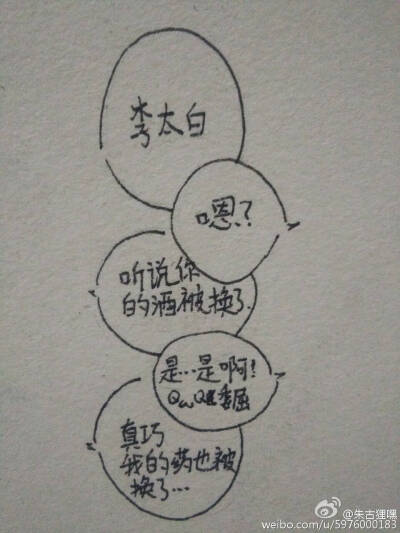 李太白
嗯?
听说你
的酒被换了.
是...是啊!
QwQ委屈
真巧
我的药也被
换了...
@朱古狸嘿
weibo.com/u/5976000183